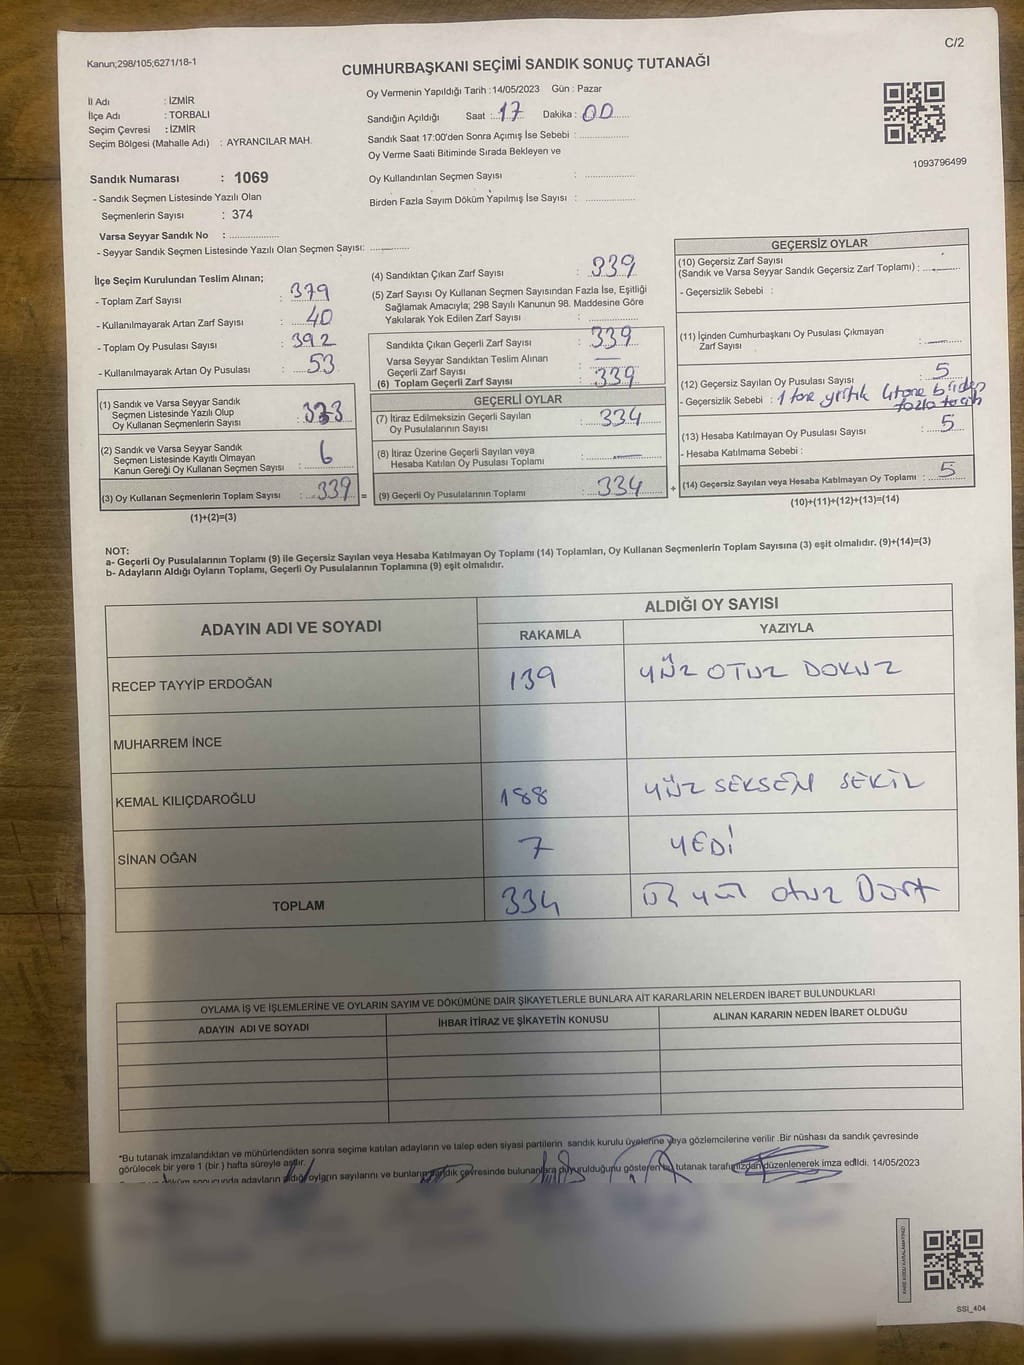 C/2
Kanun;298/105;6271/18-1
CUMHURBAŞKANI SEÇİMİ SANDIK SONUÇ TUTANAĞI
İl Adı : İZMİR
İlçe Adı : TORBALI
Seçim Çevresi : İZMİR
Seçim Bölgesi (Mahalle Adı) : AYRANCILAR MAH.
Oy Vermenin Yapıldığı Tarih :14/05/2023 Gün : Pazar
Sandığın Açıldığı Saat : 17 Dakika : 00
Sandık Saat 17:00'den Sonra Açımış İse Sebebi :
Oy Verme Saati Bitiminde Sırada Bekleyen ve
Oy Kullandırılan Seçmen Sayısı :
Birden Fazla Sayım Döküm Yapılmış İse Sayısı :
1093796499
Sandık Numarası : 1069
- Sandık Seçmen Listesinde Yazılı Olan
Seçmenlerin Sayısı : 374
Varsa Seyyar Sandık No :
- Seyyar Sandık Seçmen Listesinde Yazılı Olan Seçmen Sayısı:
İlçe Seçim Kurulundan Teslim Alınan;
- Toplam Zarf Sayısı : 379
- Kullanılmayarak Artan Zarf Sayısı : 40
- Toplam Oy Pusulası Sayısı : 392
- Kullanılmayarak Artan Oy Pusulası : 53
(1) Sandık ve Varsa Seyyar Sandık
Seçmen Listesinde Yazılı Olup
Oy Kullanan Seçmenlerin Sayısı : 333
(2) Sandık ve Varsa Seyyar Sandık
Seçmen Listesinde Kayıtlı Olmayan
Kanun Gereği Oy Kullanan Seçmen Sayısı : 6
(3) Oy Kullanan Seçmenlerin Toplam Sayısı : 339 =
(1)+(2)=(3)
(4) Sandıktan Çıkan Zarf Sayısı : 339
(5) Zarf Sayısı Oy Kullanan Seçmen Sayısından Fazla İse, Eşitliği
Sağlamak Amacıyla; 298 Sayılı Kanunun 98. Maddesine Göre
Yakılarak Yok Edilen Zarf Sayısı :
Sandıkta Çıkan Geçerli Zarf Sayısı : 339
Varsa Seyyar Sandıktan Teslim Alınan
Geçerli Zarf Sayısı : —
(6) Toplam Geçerli Zarf Sayısı : 339
GEÇERLİ OYLAR
(7) İtiraz Edilmeksizin Geçerli Sayılan
Oy Pusulalarının Sayısı : 334
(8) İtiraz Üzerine Geçerli Sayılan veya
Hesaba Katılan Oy Pusulası Toplamı : —
(9) Geçerli Oy Pusulalarının Toplamı : 334 +
GEÇERSİZ OYLAR
(10) Geçersiz Zarf Sayısı
(Sandık ve Varsa Seyyar Sandık Geçersiz Zarf Toplamı) : —
- Geçersizlik Sebebi :
(11) İçinden Cumhurbaşkanı Oy Pusulası Çıkmayan
Zarf Sayısı : —
(12) Geçersiz Sayılan Oy Pusulası Sayısı : 5
- Geçersizlik Sebebi : 1 tane yırtık 4 tane birden
fazla tercih
(13) Hesaba Katılmayan Oy Pusulası Sayısı : 5
- Hesaba Katılmama Sebebi :
(14) Geçersiz Sayılan veya Hesaba Katılmayan Oy Toplamı : 5
(10)+(11)+(12)+(13)=(14)
NOT:
a- Geçerli Oy Pusulalarının Toplamı (9) ile Geçersiz Sayılan veya Hesaba Katılmayan Oy Toplamı (14) Toplamları, Oy Kullanan Seçmenlerin Toplam Sayısına (3) eşit olmalıdır. (9)+(14)=(3)
b- Adayların Aldığı Oyların Toplamı, Geçerli Oy Pusulalarının Toplamına (9) eşit olmalıdır.
ADAYIN ADI VE SOYADI ALDIĞI OY SAYISI
RAKAMLA YAZIYLA
RECEP TAYYİP ERDOĞAN 139 YÜZ OTUZ DOKUZ
MUHARREM İNCE
KEMAL KILIÇDAROĞLU 188 YÜZ SEKSEN SEKİZ
SİNAN OĞAN 7 YEDİ
TOPLAM 334 üç yüz otuz Dört
OYLAMA İŞ VE İŞLEMLERİNE VE OYLARIN SAYIM VE DÖKÜMÜNE DAİR ŞİKAYETLERLE BUNLARA AİT KARARLARIN NELERDEN İBARET BULUNDUKLARI
ADAYIN ADI VE SOYADI İHBAR İTİRAZ VE ŞİKAYETİN KONUSU ALINAN KARARIN NEDEN İBARET OLDUĞU
*Bu tutanak imzalandıktan ve mühürlendikten sonra seçime katılan adayların ve talep eden siyasi partilerin sandık kurulu üyelerine veya gözlemcilerine verilir .Bir nüshası da sandık çevresinde
görülecek bir yere 1 (bir ) hafta süreyle asılır.
döküm sonucunda adayların aldığı oyların sayılarını ve bunların sandık çevresinde bulunanlara duyurulduğunu gösteren bu tutanak tarafımızdan düzenlenerek imza edildi. 14/05/2023
SSI_404